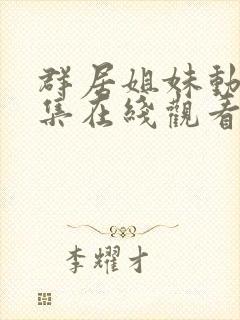 群居姐妹動
集在綫觀看
李耀才